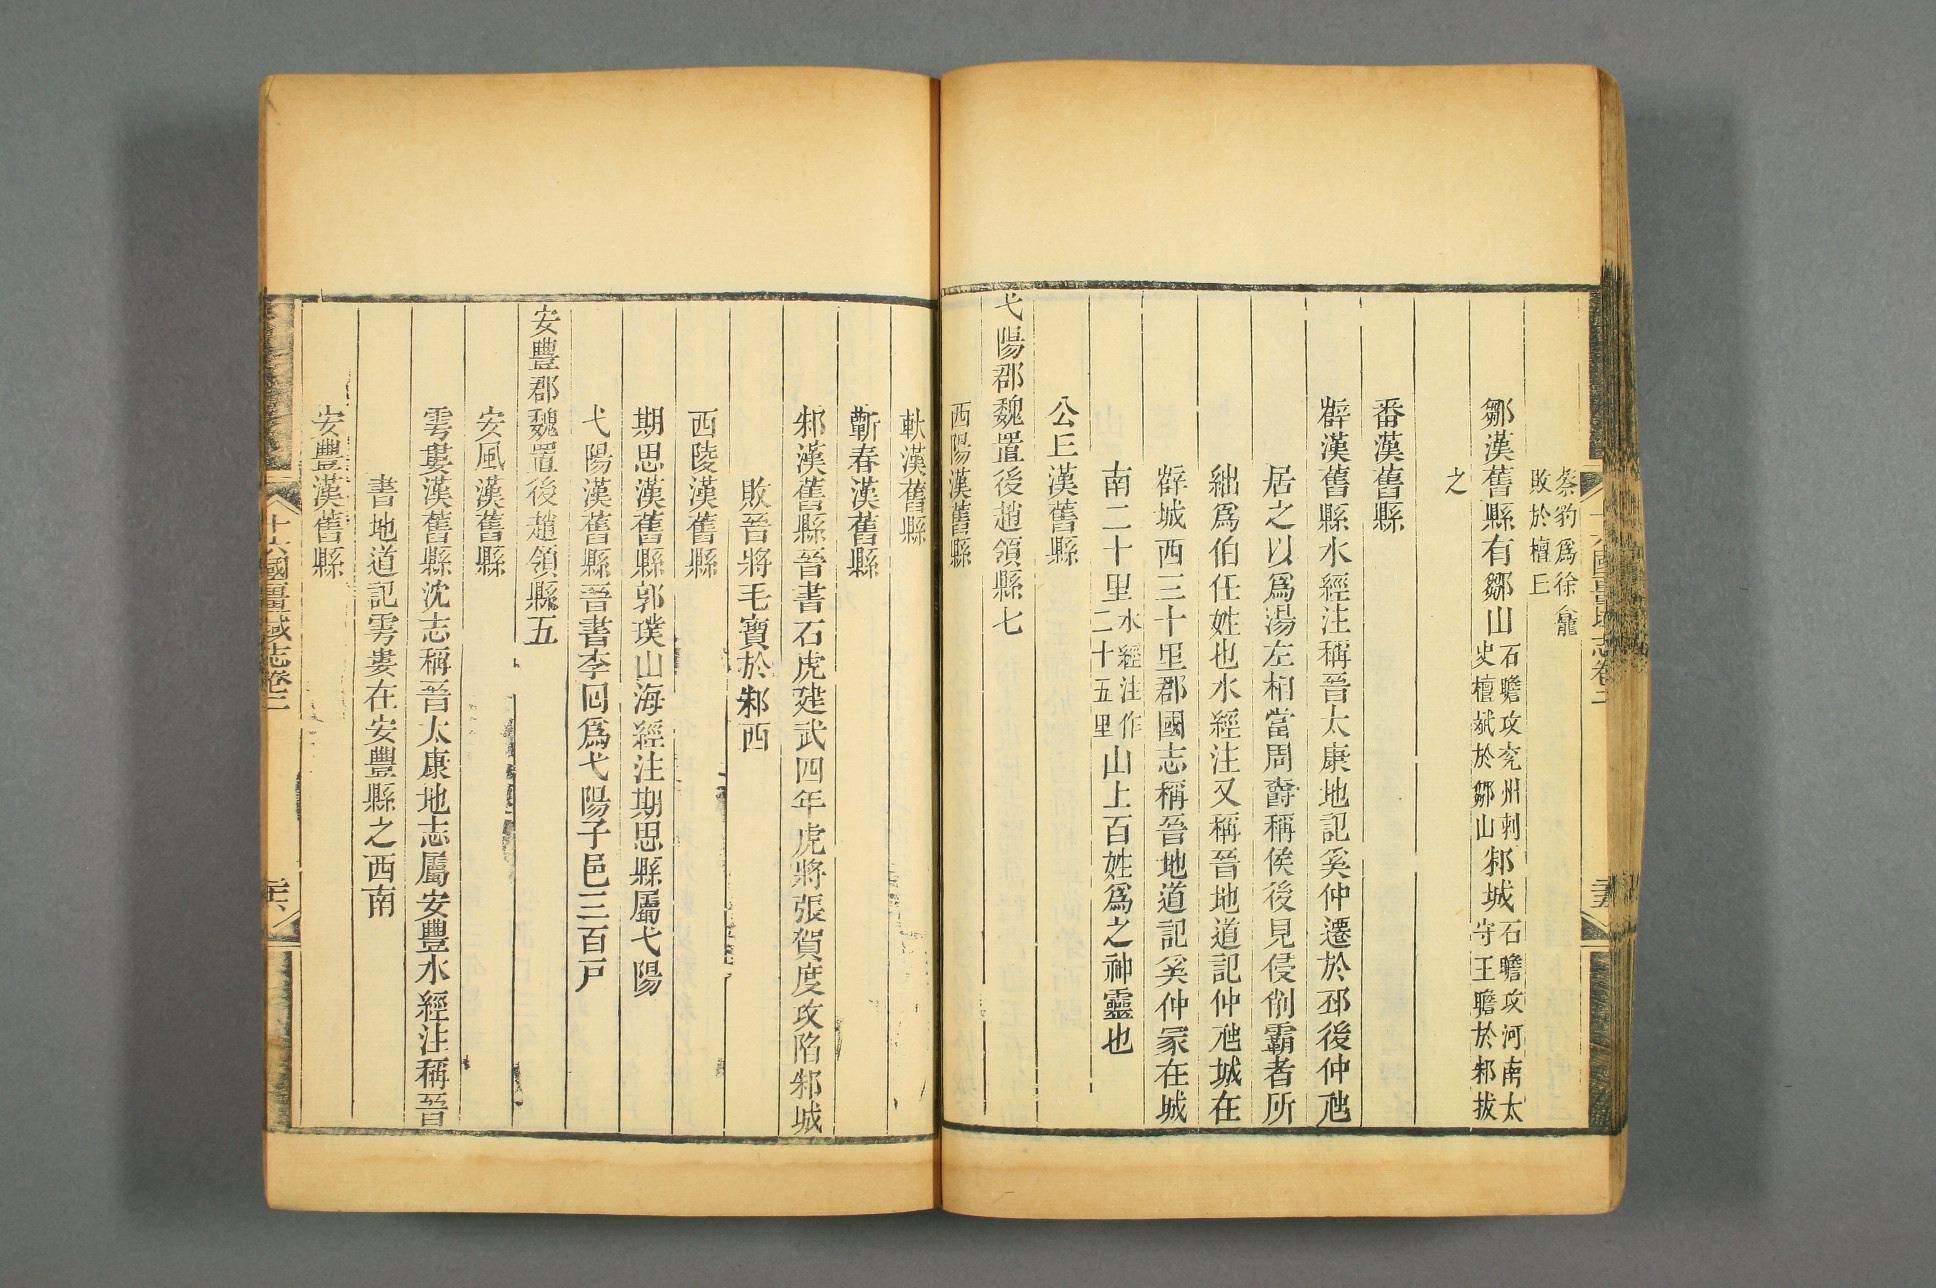 祭豹爲徐龕
敗於檀丘
鄒漢舊縣有鄒山石瞻攻兖州刺史檀斌於鄒山邾城石瞻攻河南太守王瞻於邾拔
之
番漢舊縣
薛漢舊縣水經注稱晉太康地記奚仲遷於邳後仲虺
居之以爲湯左相當周爵稱侯後見侵削霸者所
絀爲伯任姓也水經注又稱晉地道記仲虺城在
薛城西三十里郡國志稱晉地道記奚仲冢在城
南二十里水經注作二十五里山上百姓爲之神靈也
公丘漢舊縣
弋陽郡魏置後趙領縣七
西陽漢舊縣
軑漢舊縣
蘄春漢舊縣
邾漢舊縣晉書石虎建武四年虎將張賀度攻陷邾城
敗晉將毛寶於邾西
西陵漢舊縣
期思漢舊縣郭璞山海經注期思縣屬弋陽
弋陽漢舊縣晉書李回爲弋陽子邑三百戸
安豐郡魏置後趙領縣五
安風漢舊縣
雩婁漢舊縣沈志稱晉太康地志屬安豐水經注稱晉
書地道記雩婁在安豐縣之西南
安豐漢舊縣
十六國疆域志卷二